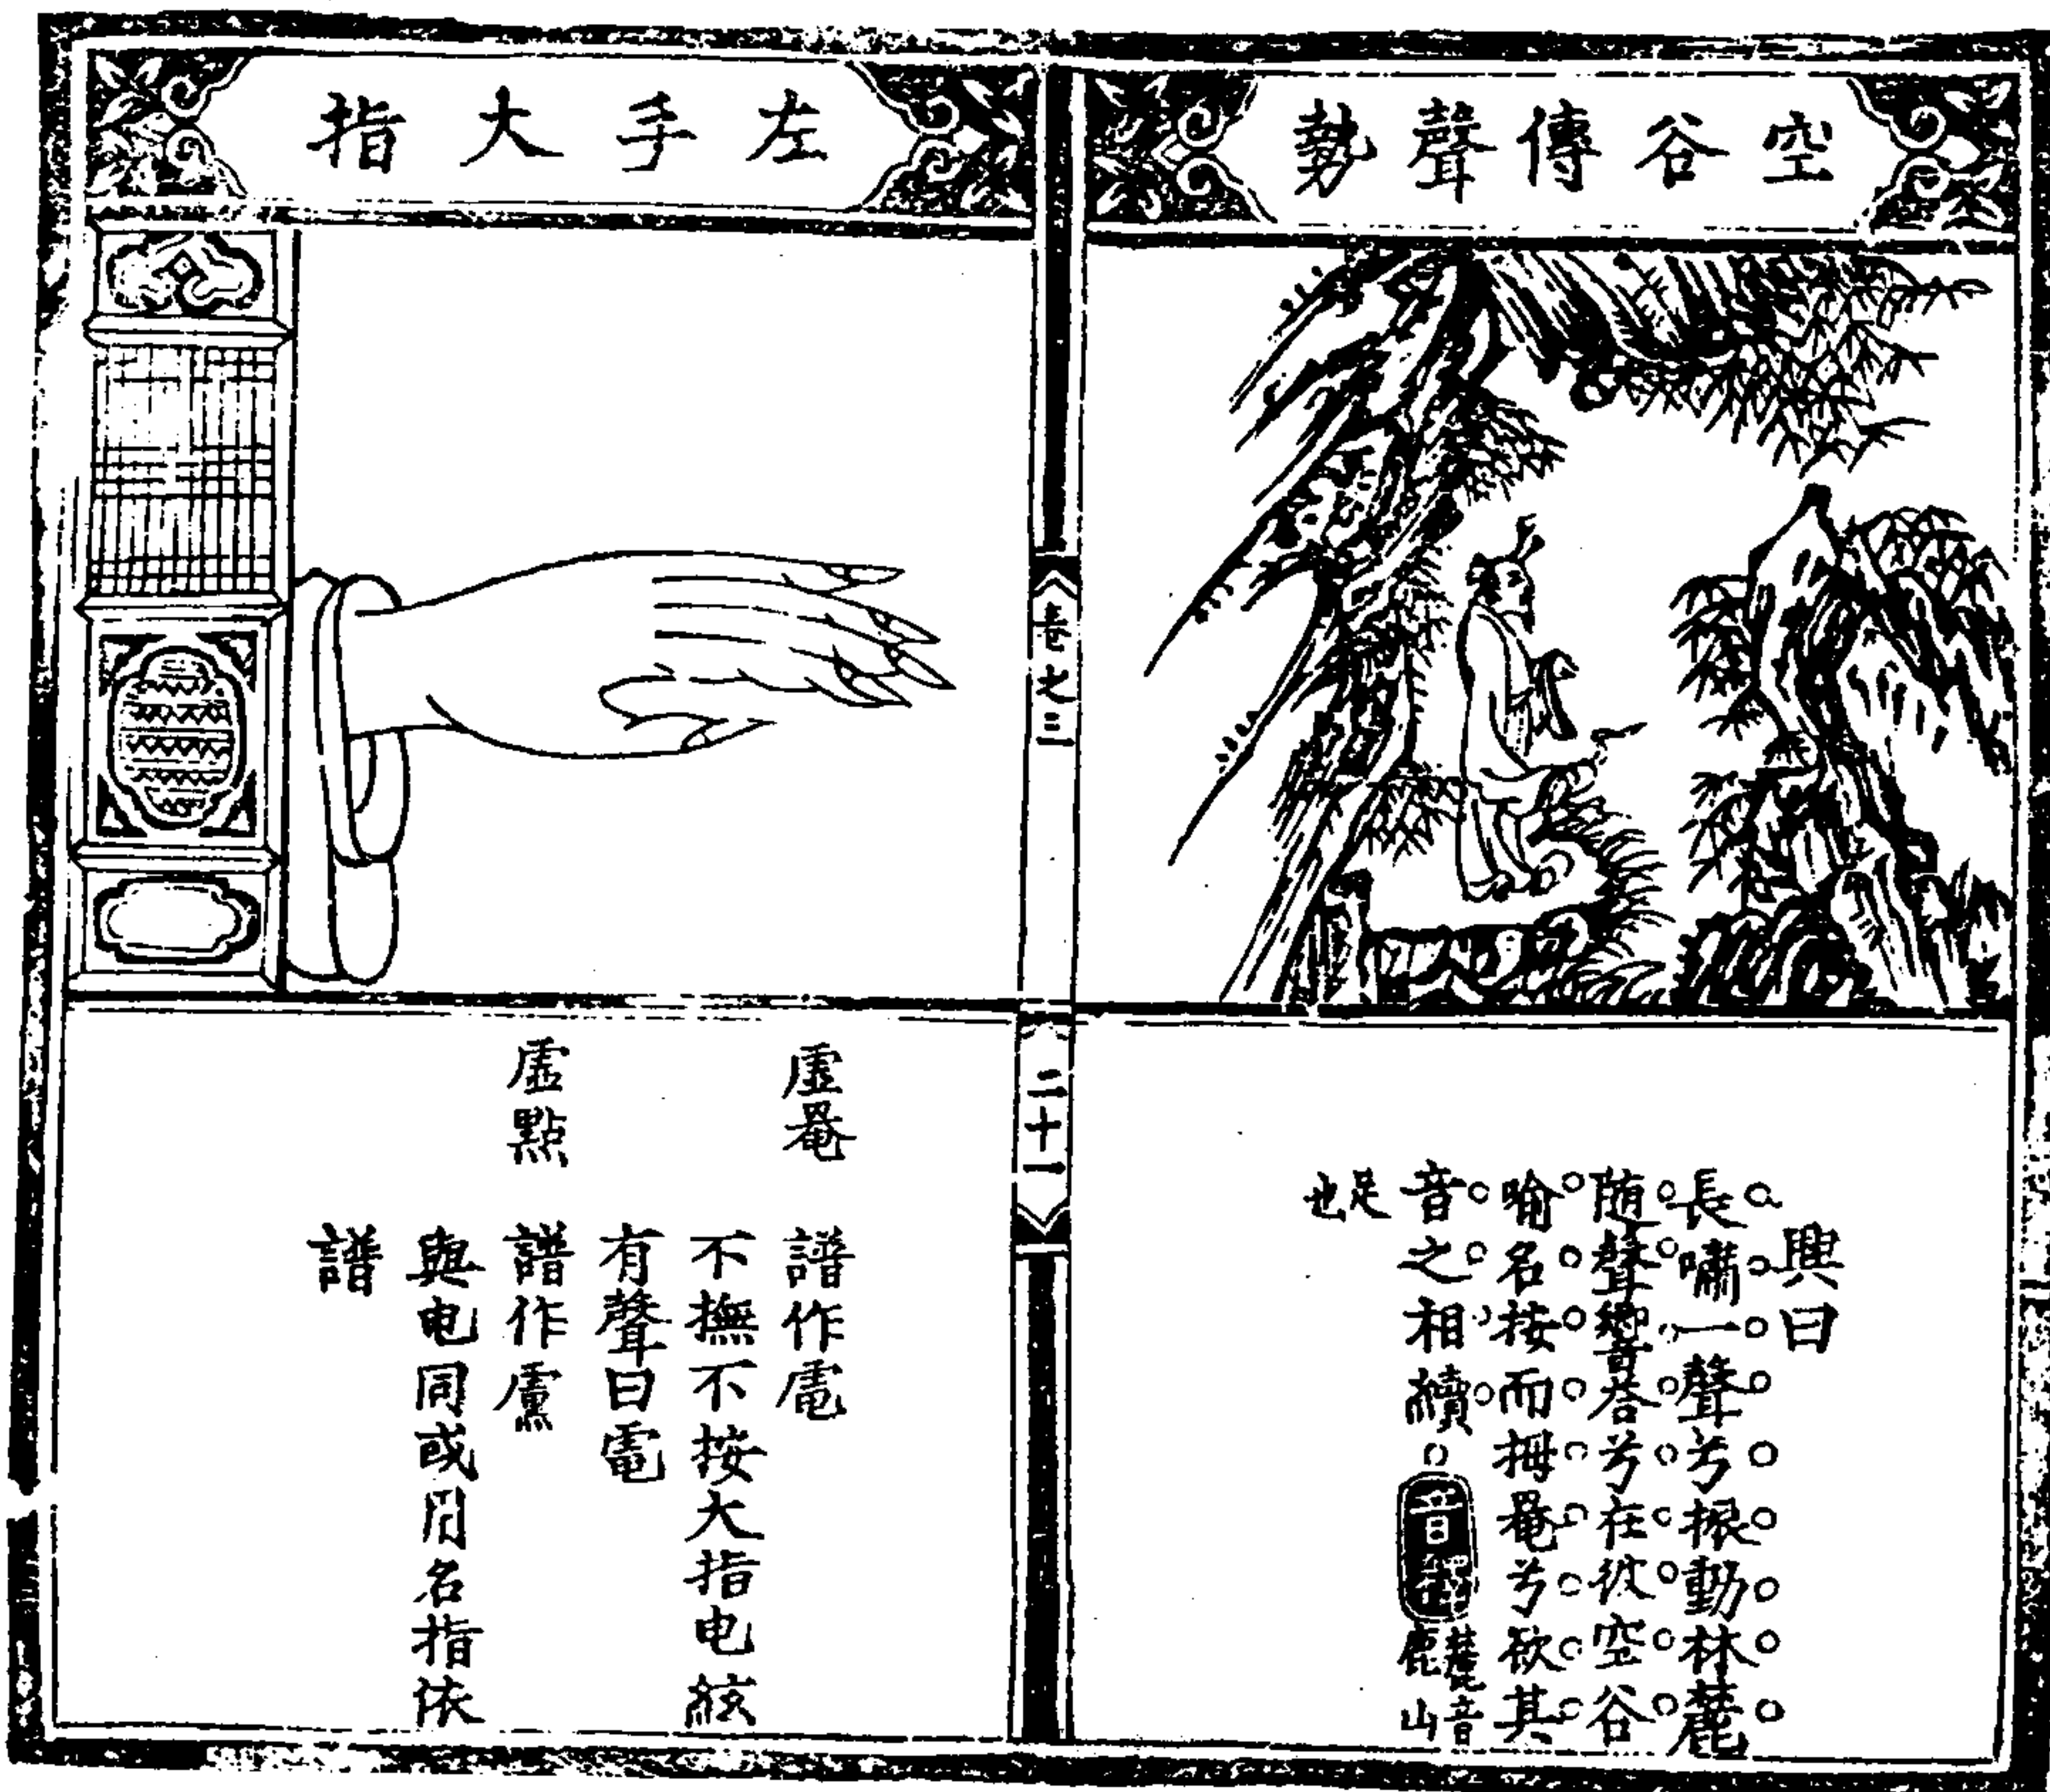 空谷傳聲勢
興曰
長嘯一聲兮振動林麓
随聲響荅兮在彼空谷
喻名按而拇罨兮欲其
音之相續 音釋 麓音鹿山
足也
二十一
左手大指
虛罨 譜作䖙
不撫不按大指电絃
有聲曰
虛點 譜作
與电同或用名指依
譜